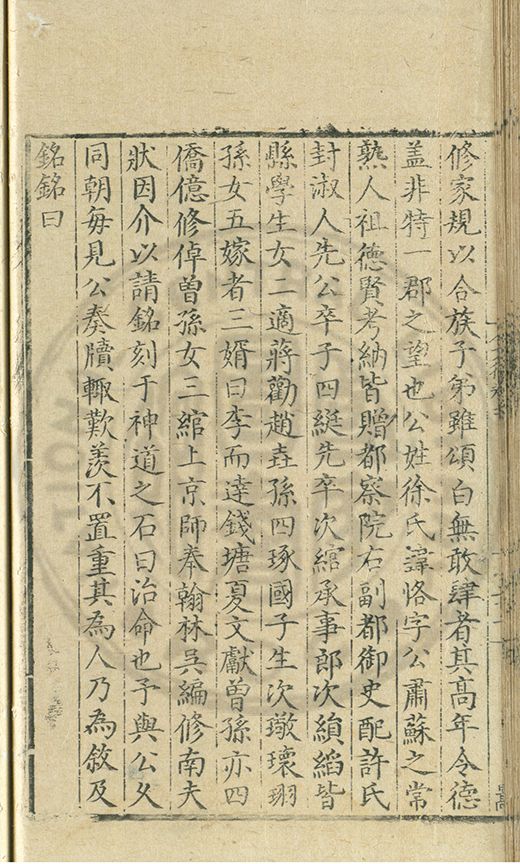 修家規以合族子弟雖頒白無敢肆者其高年令德
盖非特一郡之望也公姓徐氏諱恪字公肅蘇之常
熟人祖德賢考納皆贈都察院右副都御史配許氏
封淑人先公卒子四綎先卒次綰承事郎次縝縚皆
縣學生女二適蔣勸趙壵孫四琢國子生次璥瓌珝
孫女五嫁者三婿曰李而達錢塘夏文獻曾孫亦四
僑億修倬曾孫女三綰上京師奉翰林吳編修南夫
狀因介以請銘刻于神道之石曰治命也予與公久
同朝每見公奏牘輙歎羨不置重其為人乃為敘及
銘銘曰